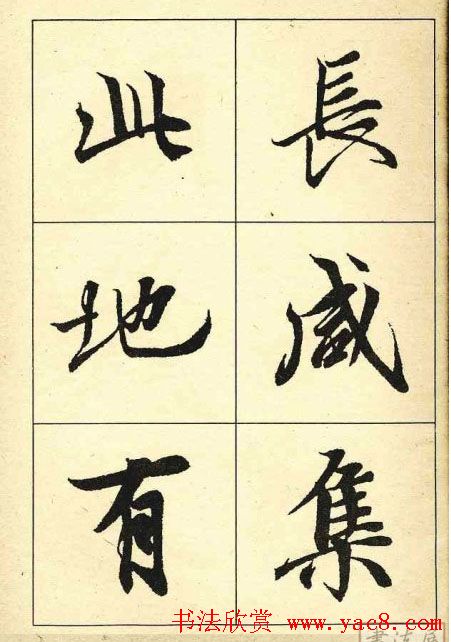 長咸集
此地有
书法欣赏 www.yac8.com